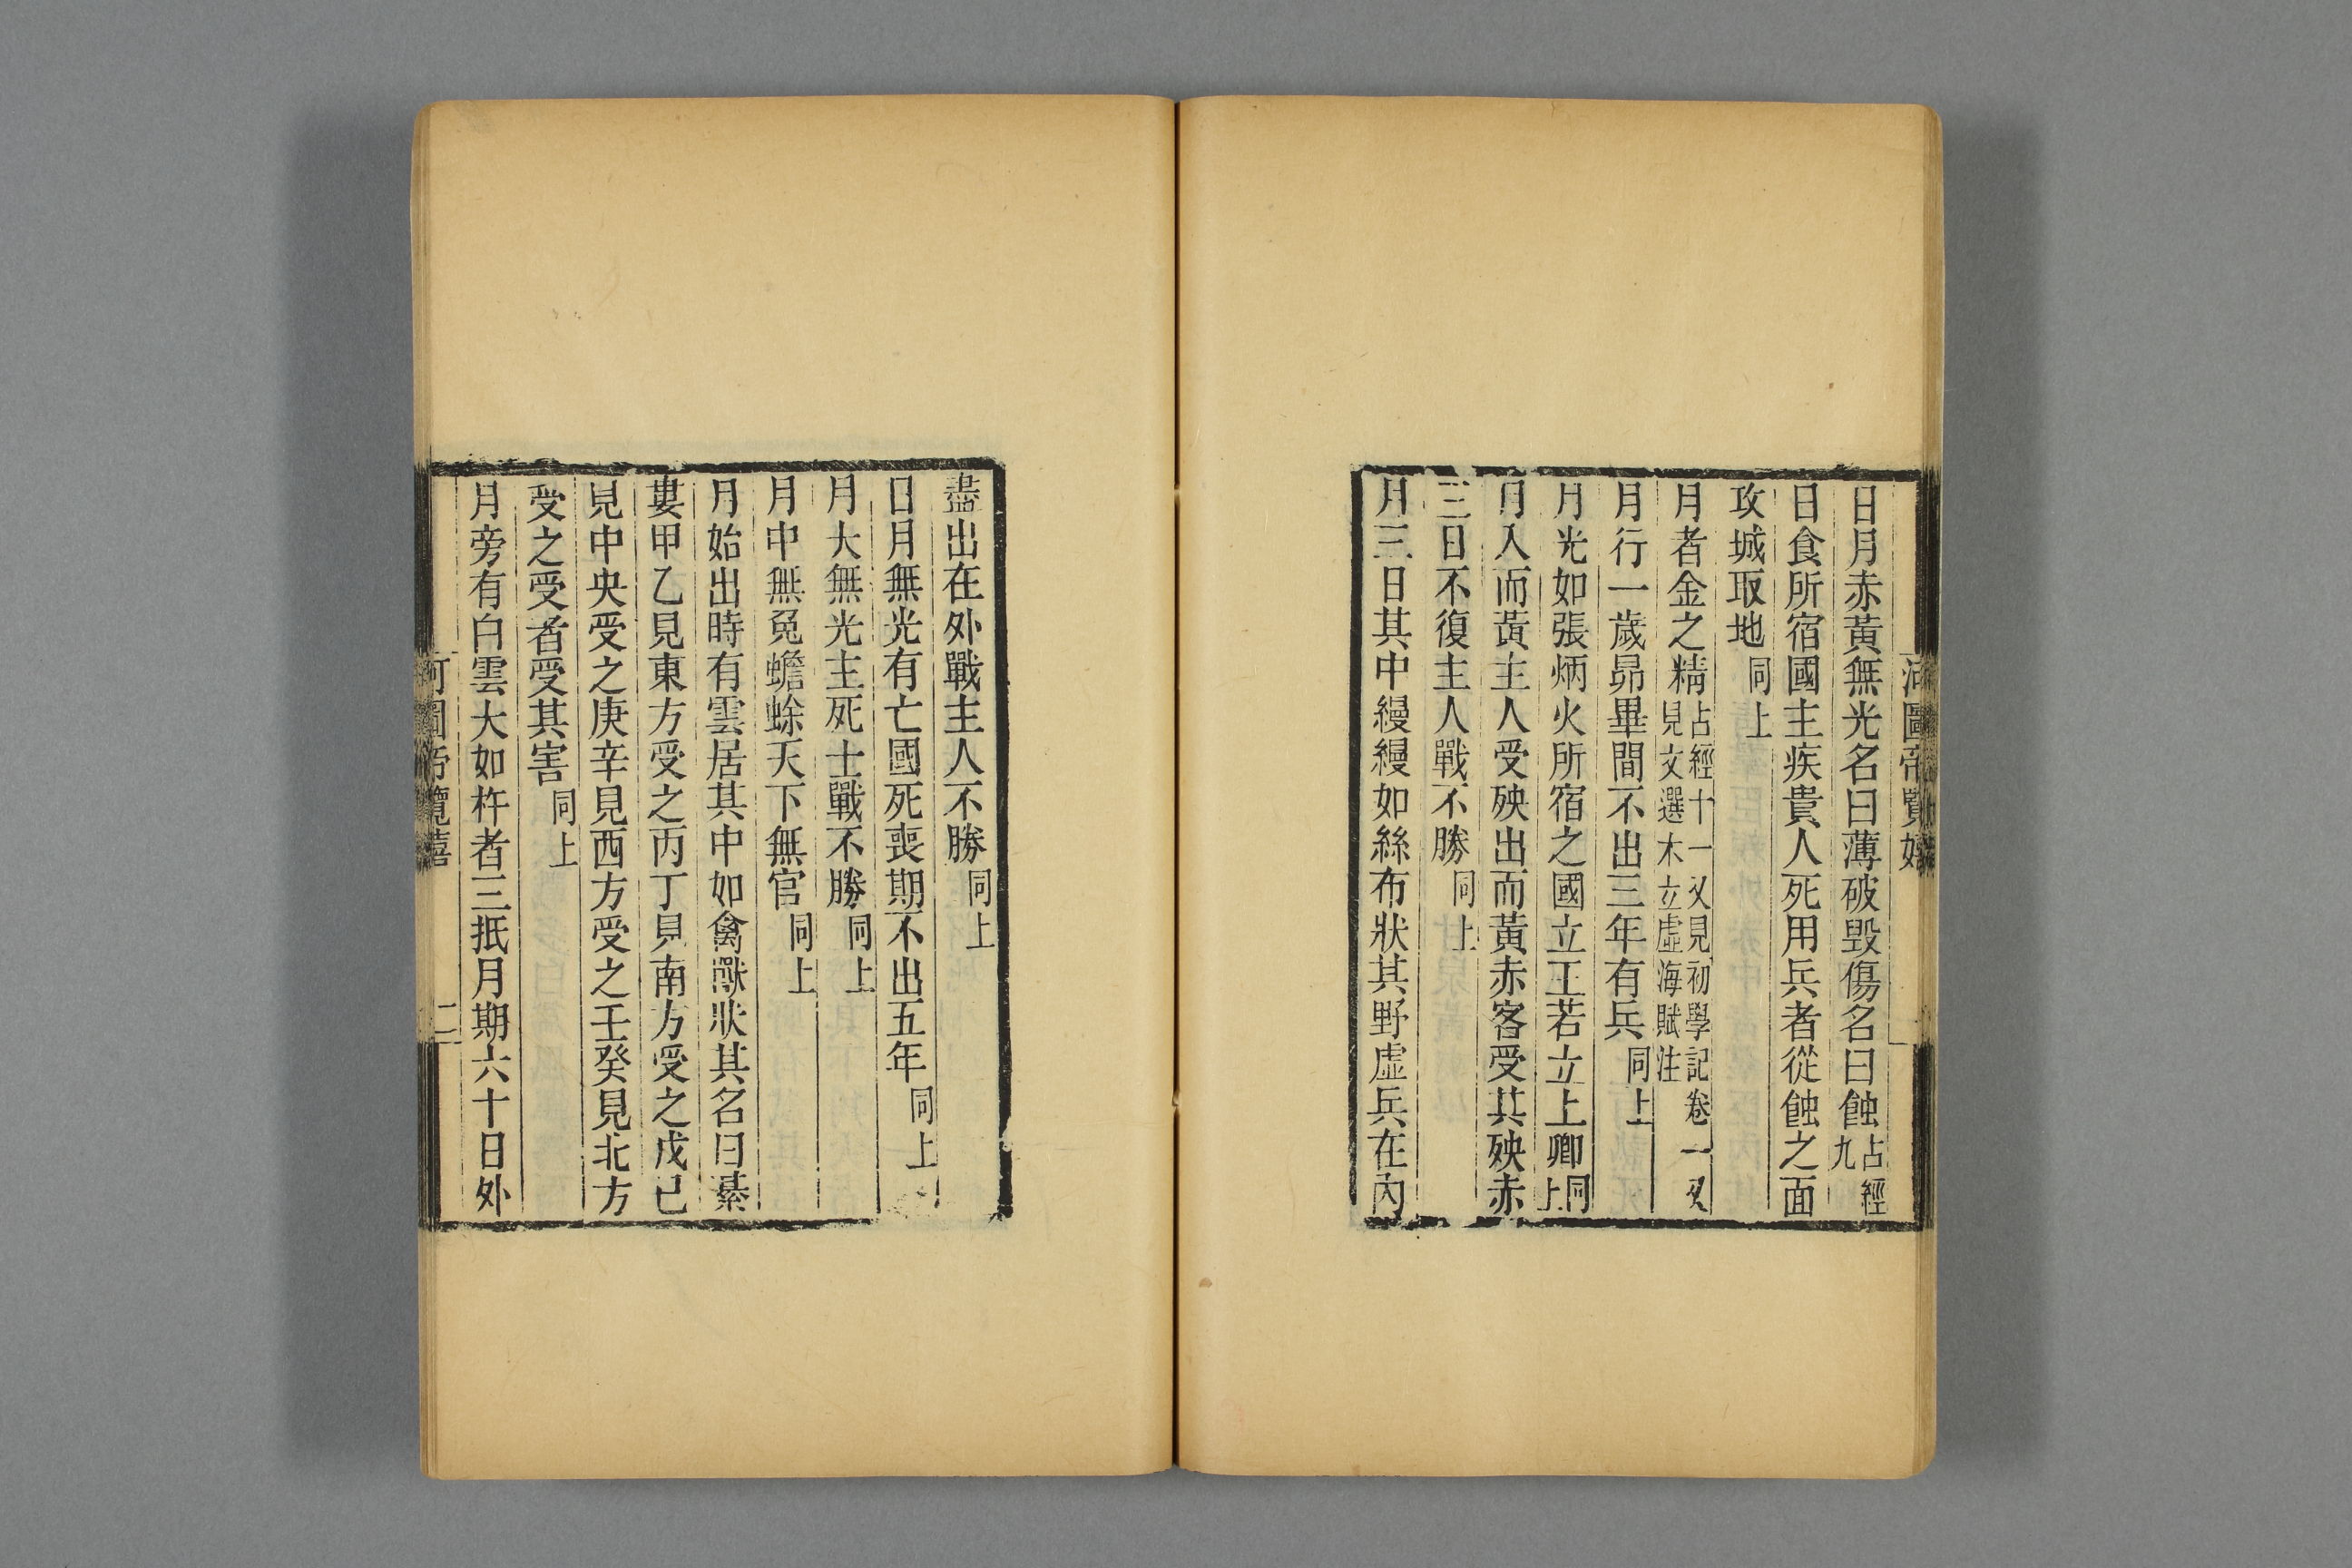 日月赤黃無光名曰薄破毀傷名曰蝕占經九
日食所宿國主疾貴人死用兵者從蝕之面
攻城取地同上
月者金之精占經十一又見初學記卷一又見文選木立虛海賦注
月行一歲昴畢間不出三年有兵同上
月光如張炳火所宿之國立王若立上卿同上
月入而黃主人受殃出而黃赤客受其殃赤
三日不復主人戰不勝同上
月三日其中縵縵如絲布狀其野虛兵在內
盡出在外戰主人不勝同上
日月無光有亡國死喪期不出五年同上
月大無光主死士戰不勝同上
月中無兔蟾蜍天下無官同上
月始出時有雲居其中如禽獸狀其名曰綦
婁甲乙見東方受之丙丁見南方受之戊己
見中央受之庚辛見西方受之壬癸見北方
受之受者受其害同上
月旁有白雲大如杵者三抵月期六十日外
河圖帝覽嬉 二